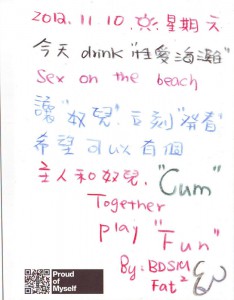 2012. 11. 10. 星期六
今天 drink "性愛海灘"
Sex on the beach
讓"奴兒"立刻"發春"
希望可以有個
主人和奴兒. "Cum"
Together
play "Fun"
By: BDSM
Fat²
Proud
of
Myself